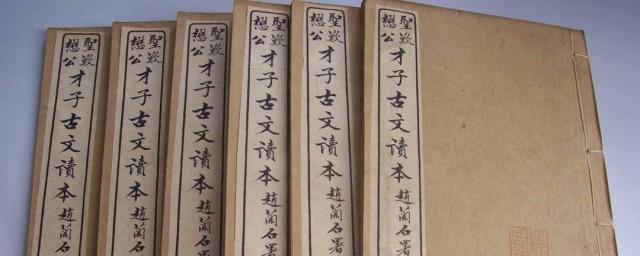 聖歎
懋公
才子古文讀本 趙蘭石署
聖歎
懋公
才子古文讀本 趙蘭石署
聖歎
懋公
才子古文讀本 趙蘭石署
聖歎
懋公
才子古文讀本 趙蘭石署
聖歎
懋公
才子古文讀本 趙蘭石
聖歎
懋公
才子古文讀本 趙蘭石